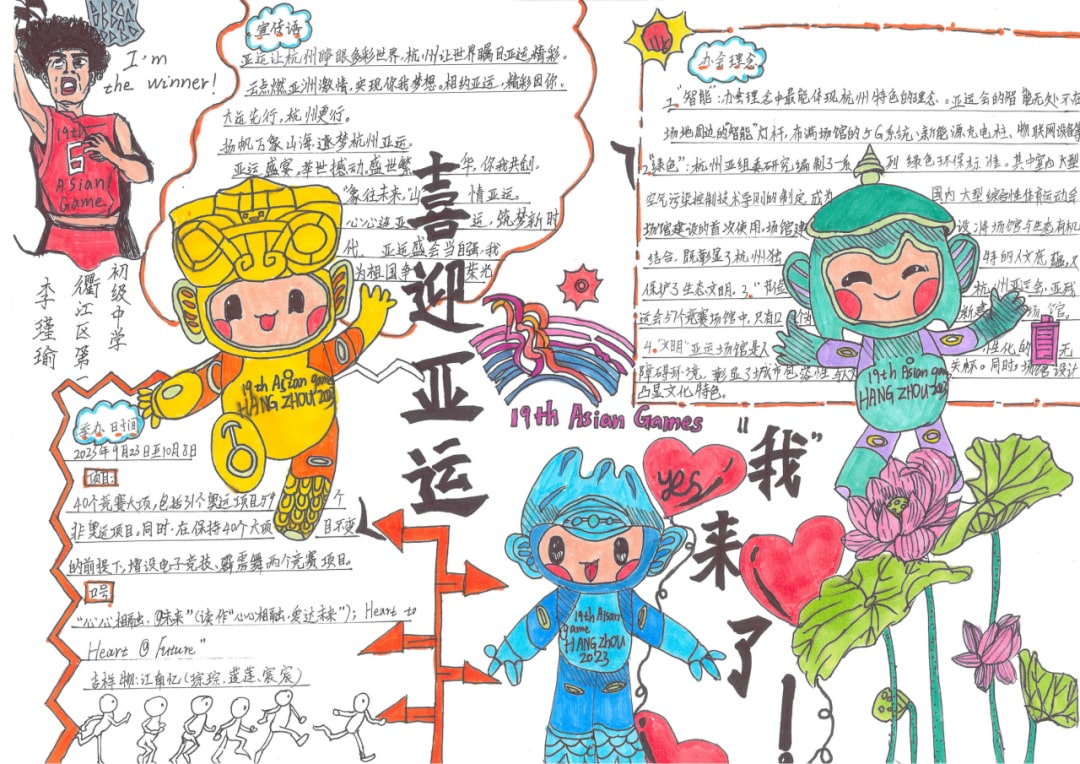 I'm
the winner!
19th
6
Asian
Game
初级中学
衢江区第
李瑾瑜
宣传语
亚运让杭州睁眼多彩世界,杭州让世界瞩目亚运精彩。
点燃亚洲激情,实现你我梦想。相约亚运,精彩因你。
大益先行,杭州更行。
扬帆万象山海,逐梦杭州亚运。
亚运盛宴,举世撼动,盛世繁华,你我共创。
"象往未来,"山 情亚运。
心心连亚 运,筑梦新时
代, 亚运盛会当自强,我
为祖国争 荣光
喜迎亚运
19th Asian Games
"我"来了!
yes!
19th Asian game
HANG ZHOU 2023
19th Asian game
HANG ZHOU 2023
19th Asian
game
HANG ZHOU
2023
办会理念
1."智能":办会理念中最能体现杭州特色的理念。亚运会的智能无处不在
场地周边的"智能"灯杆,布满场馆的5G系统、新能源充电桩、物联网设备等
2."绿色":杭州亚组委研究,编制了一系列绿色环保标准。其中室内大型
空气污染控制技术导则的制定,成为 国内大型综合性体育运动会
场馆建设的首次使用。场馆建设,将场馆与态有机
结合,既彰显了杭州独特的人文底蕴,又
保护了生态文明。3." 杭州亚运会,亚残
运会57个竞赛场馆中,只有12 新建场馆。
4."文明"亚运场馆是人性化的 无
障碍环境,彰显了城市包容性与 关标。同时,场馆设计
凸显文化特色。
举办时间
2023年9月23日至10月8日
项目:
40个竞赛大项,包括31个奥运项目与9个
非奥运项目。同时,在保持40个大项目不变
的前提下,增设电子竞技、霹雳舞两个竞赛项目。
口号
"心心相融,@未来"(读作"心心相融,爱达未来");Heart to
Heart @ future"
吉祥物:江南忆(琮琮、莲莲、宸宸)